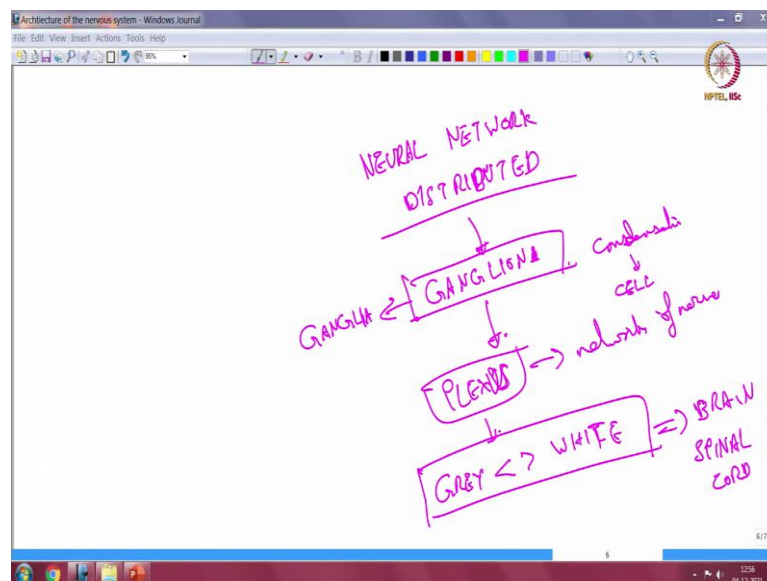 Archtiecture of the nervous system - Windows Journal
File Edit View Insert Actions Tools Help
96%
B I
NPTEL, IISc
NEURAL NETWORK
DISTRIBUTED
GANGLIONS
GANGLIA
Condensatn
CELL
PLEXUS → network of nerve
GREY <> WHITE ⇒ BRAIN
SPINAL
CORD
6/7
6
12:56
04-12-2021